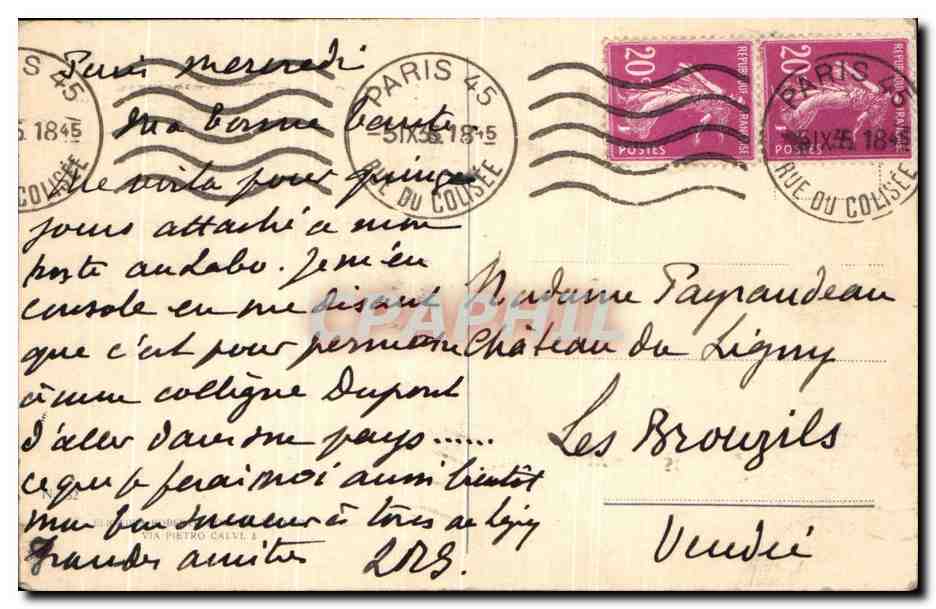 Paris mercredi
Ma bonne tante.
Me voilà pour quinze
jours attaché à mon
poste au Labo. Je m'en
console en me disant
que c'est pour permettre
à mon collègue Dupont
d'aller dans son pays......
ce que je ferai moi aussi bientôt
mon bon souvenir à tous de Ligny
Grandes amitiés
Madame Payraudeau
Château du Ligny
Les Brouzils
Vendée
PARIS 45
5 IX 35 18 45
RUE DU COLISÉE
S 45
5. 18 45
COLISÉE
PARIS 45
5 IX 35 18 45
RUE DU COLISÉE
20c
REPUBLIQUE FRANCAISE
POSTES
20c
REPUBLIQUE FRANCAISE
POSTES
CPAPHIL
VIA PIETRO CALVI,